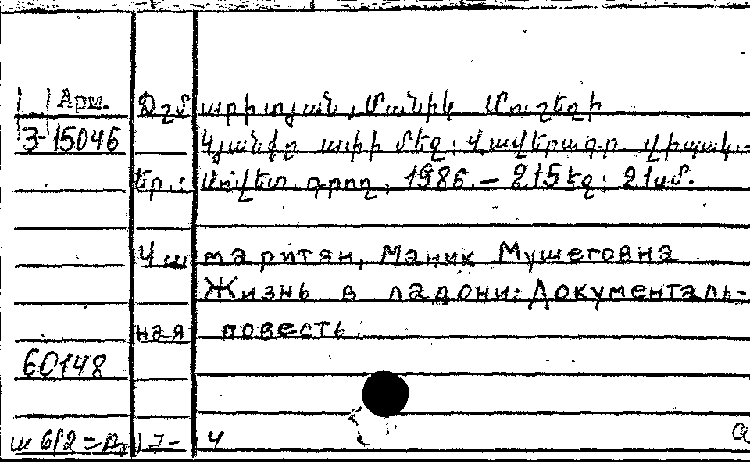 Арм.
3-15046
Դշմարիտյան, Մանիկ Մուշեղի
Կյանքը ափի մեջ: Վավերագր. վիպակ.-
Եր.: Սովետ. գրող, 1986.- 215 էջ: 21 սմ.
Чшмаритян, Маник Мушеговна
Жизнь в ладони: Документаль-
ная повесть
60148